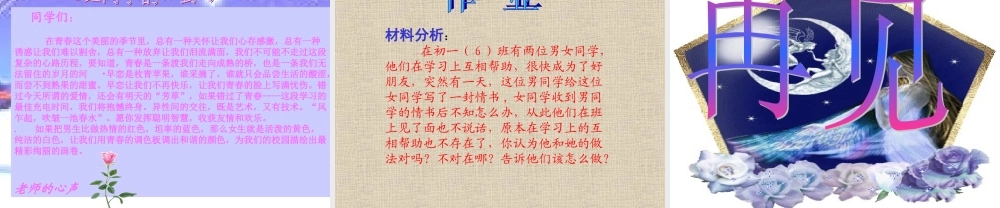 同学们：
在青春这个美丽的季节里，总有一种关怀让我们心存感激，总有一种
诱惑让我们难以割舍，总有一种放弃让我们泪流满面，我们不可能不走过这段
复杂的心路历程，要知道，青春是一条渡我们走向成熟的桥，也是一条我们无
法留住的岁月的河 ·早恋是枝青苹果，谁采摘了，谁就只会品尝生活的酸涩，
而尝不到熟果的甜蜜，早恋让我们不再快乐，让我们青春的脸上写满忧伤，错
过今天所谓的爱情，还会有明天的“芳草”，如果错过了青春——这段学习的
最佳充电时间，我们将抱憾终身，异性间的交往，既是艺术，又有技术，“风
乍起，吹皱一池春水”，愿你发挥聪明智慧，收获友情和欢乐。
. 如果把男生比做热情的红色，坦率的蓝色，那么女生就是活泼的黄色，
纯洁的白色，让我们用青春的调色板调出和谐的颜色，为我们的校园描绘出最
精彩绚丽的画卷。
老师的心声
作 业
材料分析：
在初一（.6）班有两位男女同学，
他们在学习上互相帮助，很快成为了好
朋友，突然有一天，这位男同学给这位
女同学写了一封情书，女同学收到男同
学的情书后不知怎么办，从此他们在班
上见了面也不说话，原本在学习上的互
相帮助也不存在了，你认为他和她的做
法对吗？不对在哪？告诉他们该怎么做？
再见